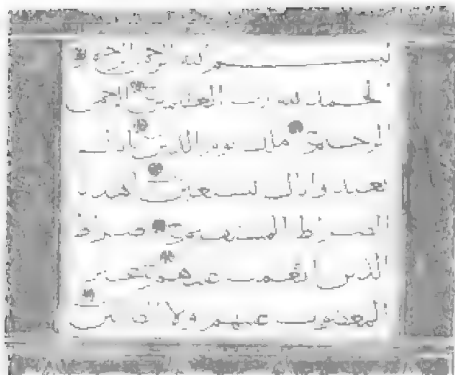 بسم الله الرحمن الرحيم
الحمد لله رب العلمين الرحمن
الرحيم ملك يوم الدين اياك
نعبد واياك نستعين اهدنا
الصرط المستقيم صرط
الذين انعمت عليهم غير
المغضوب عليهم ولا الضالين